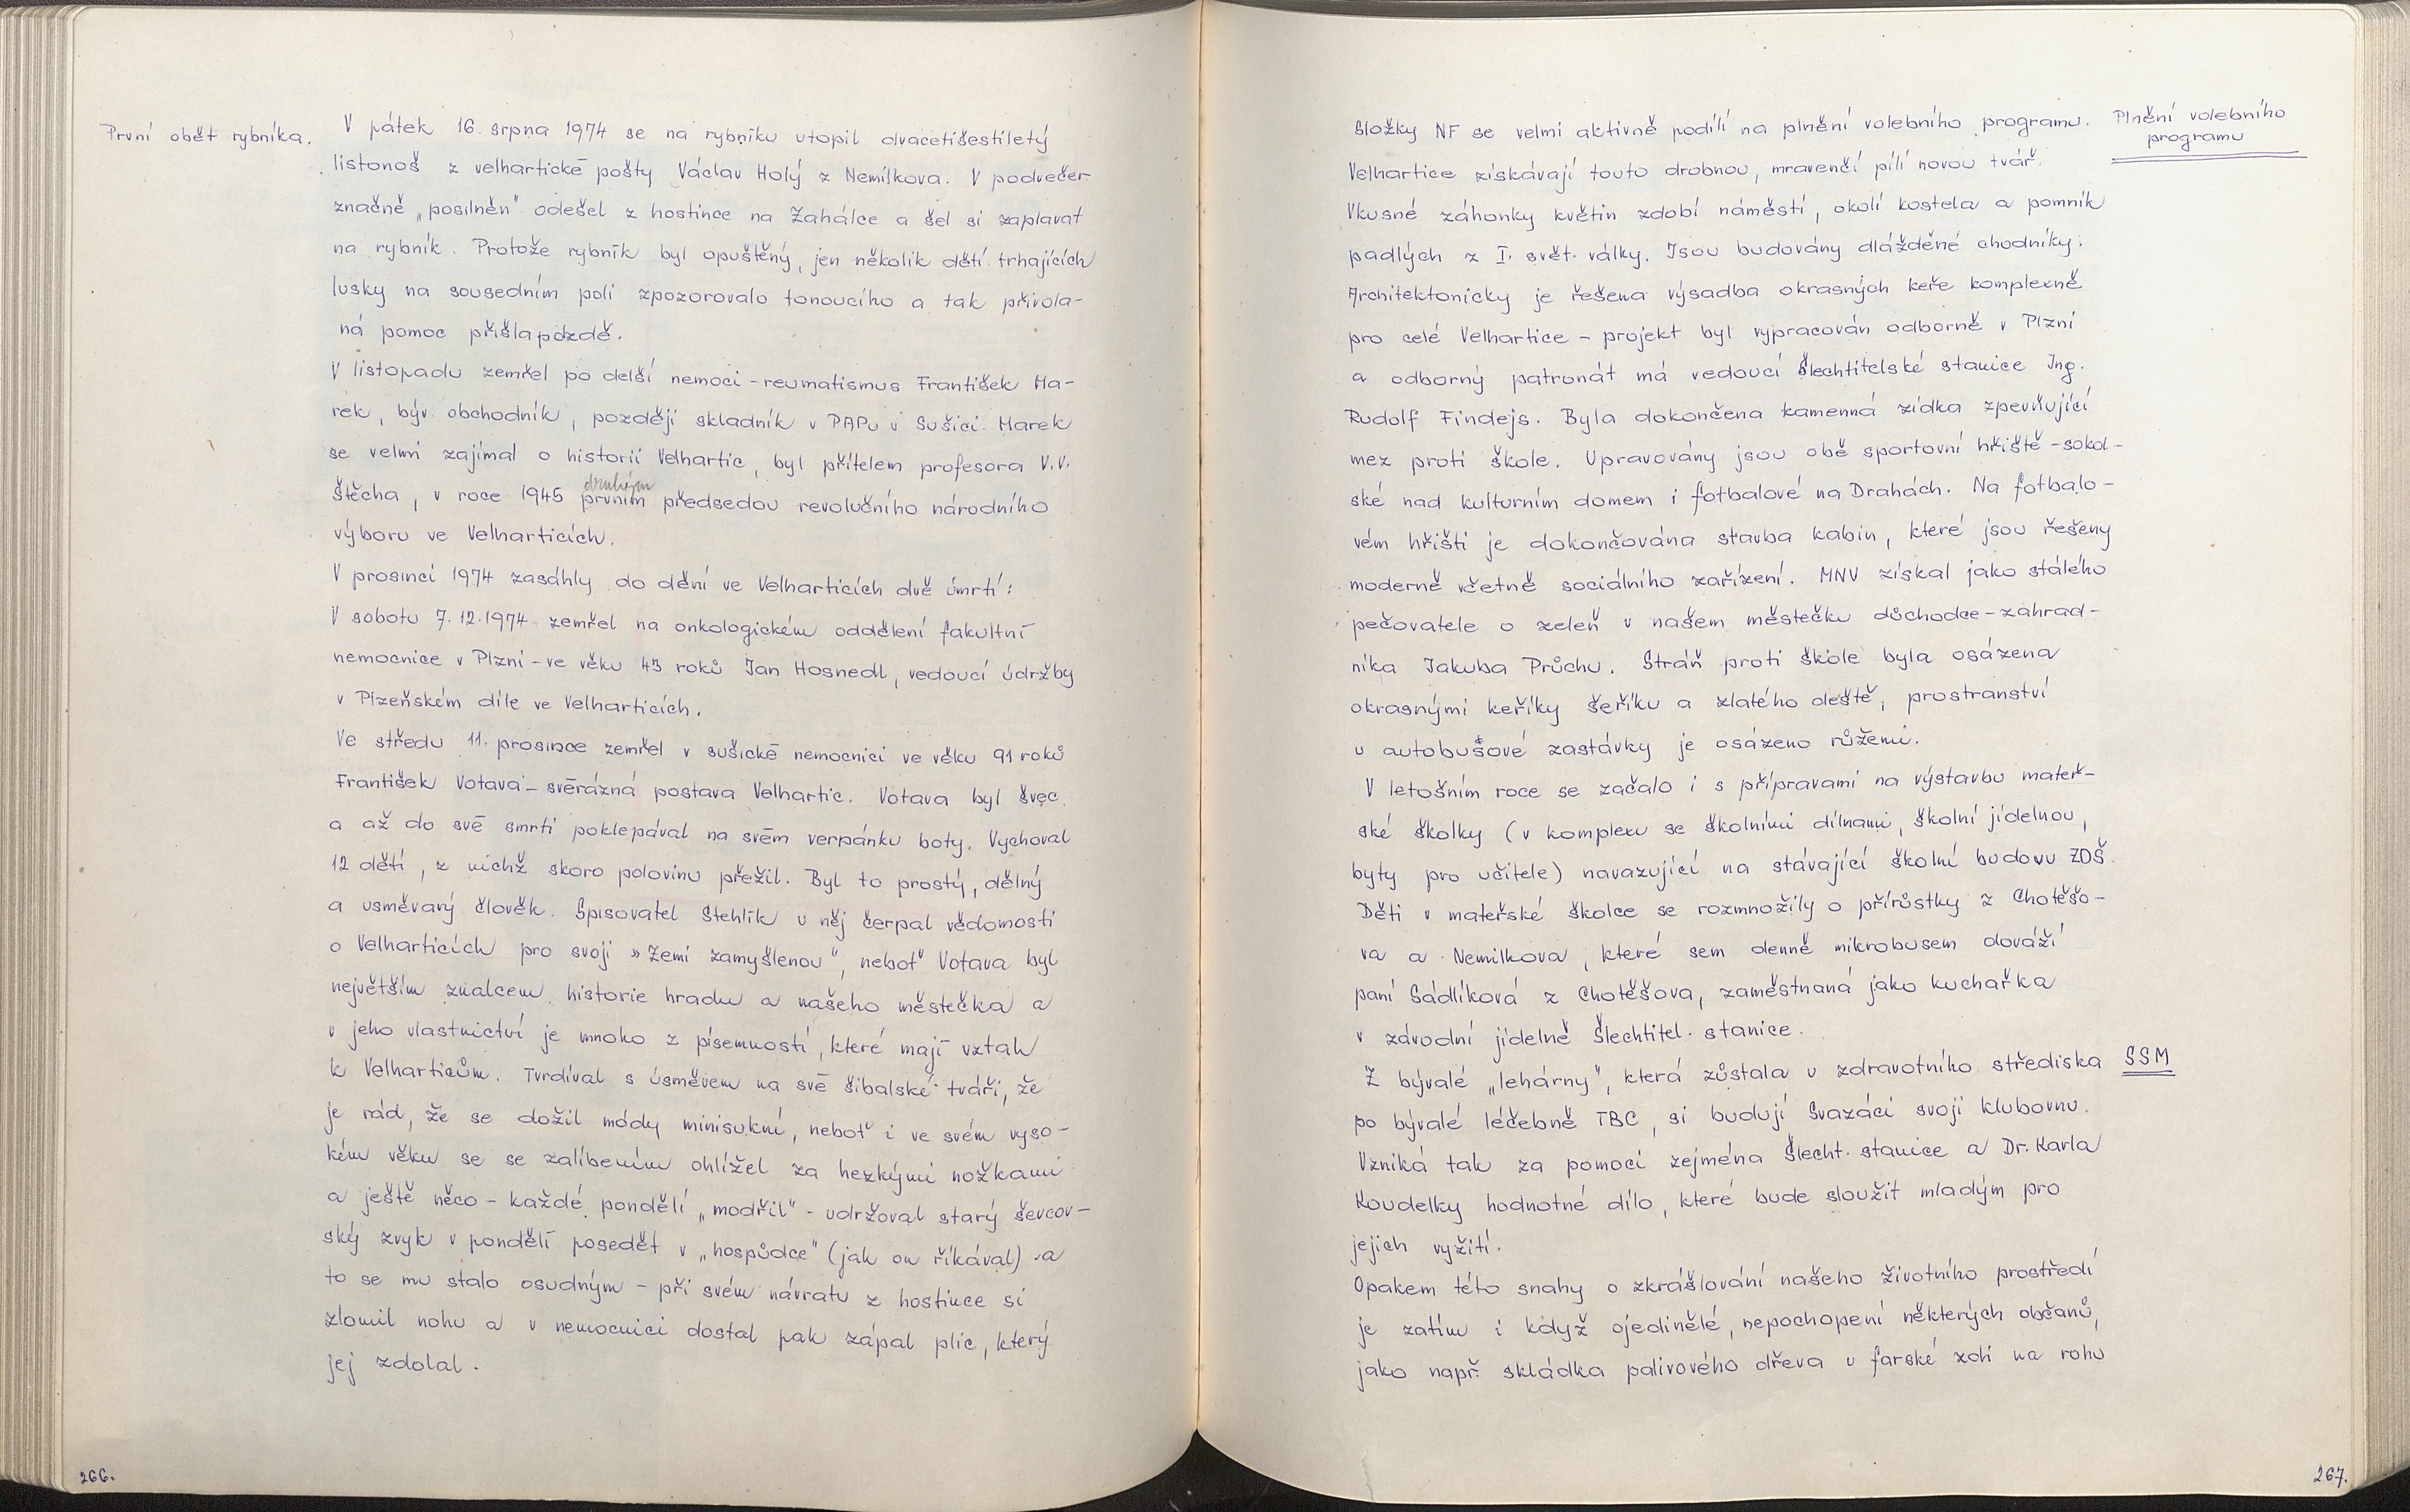 První obět rybníka.
V pátek 16. srpna 1974 se na rybníku utopil dvacetišestiletý
listonoš z velhartické pošty Václav Holý z Nemilkova. V podvečer
značně „posilněn" odešel z hostince na Zahálce a šel si zaplavat
na rybník. Protože rybník byl opuštěný, jen několik dětí trhajících
lusky na sousedním poli zpozorovalo tonoucího a tak přivola-
ná pomoc přišla pozdě.
V listopadu zemřel po delší nemoci - reumatismus František Ma-
rek, býv. obchodník, později skladník v PAPu v Sušici. Marek
se velmi zajímal o historii Velhartic, byl přítelem profesora V.V.
druhým
Štěcha, v roce 1945 prvním předsedou revolučního národního
výboru ve Velharticích.
V prosinci 1974 zasáhly do dění ve Velharticích dvě úmrtí:
V sobotu 7.12.1974 zemřel na onkologickém oddělení fakultní
nemocnice v Plzni - ve věku 43 roků Jan Hosnedl, vedoucí údržby
v Plzeňském díle ve Velharticích.
Ve středu 11. prosince zemřel v sušické nemocnici ve věku 91 roků
František Votava - svérázná postava Velhartic. Votava byl švec
a až do své smrti poklepával na svém verpánku boty. Vychoval
12 dětí, z nichž skoro polovinu přežil. Byl to prostý, dělný
a usměvavý člověk. Spisovatel Stehlík u něj čerpal vědomosti
o Velharticích pro svoji „Zemi zamyšlenou", neboť Votava byl
největším znalcem historie hradu a našeho městečka a
v jeho vlastnictví je mnoho z písemností, které mají vztah
k Velharticům. Tvrdíval s úsměvem na své šibalské tváři, že
je rád, že se dožil módy minisukní, neboť i ve svém vyso-
kém věku se se zalíbením ohlížel za hezkými nožkami
a ještě něco - každé pondělí „modřil" - udržoval starý ševcov-
ský zvyk v pondělí posedět v „hospůdce" (jak on říkával) - a
to se mu stalo osudným - při svém návratu z hostince si
zlomil nohu a v nemocnici dostal pak zápal plic, který
jej zdolal.
266.
Složky NF se velmi aktivně podílí na plnění volebního programu.
Plnění volebního
programu
Velhartice získávají touto drobnou, mravenčí pílí novou tvář.
Vkusné záhonky květin zdobí náměstí, okolí kostela a pomník
padlých z I. svět. války. Jsou budovány dlážděné chodníky.
Architektonicky je řešena výsadba okrasných keře komplexně
pro celé Velhartice - projekt byl vypracován odborně v Plzni
a odborný patronát má vedoucí Šlechtitelské stanice Ing.
Rudolf Findejs. Byla dokončena kamenná zídka zpevňující
mez proti škole. Upravovány jsou obě sportovní hřiště - sokol-
ské nad kulturním domem i fotbalové na Drahách. Na fotbalo-
vém hřišti je dokončována stavba kabin, které jsou řešeny
moderně včetně sociálního zařízení. MNV získal jako stálého
pečovatele o zeleň v našem městečku důchodce - zahrad-
níka Jakuba Průchu. Stráň proti škole byla osázena
okrasnými keříky šeříku a zlatého deště, prostranství
u autobusové zastávky je osázeno růžemi.
V letošním roce se začalo i s přípravami na výstavbu mateř-
ské školky (v komplexu se školními dílnami, školní jídelnou,
byty pro učitele) navazující na stávající školní budovu ZDŠ.
Děti v mateřské školce se rozmnožily o přírůstky z Chotěšo-
va a Nemilkova, které sem denně mikrobusem dováží
paní Sádlíková z Chotěšova, zaměstnaná jako kuchařka
v závodní jídelně Šlechtitel. stanice.
Z bývalé „lehárny", která zůstala u zdravotního střediska
SSM
po bývalé léčebně TBC, si budují Svazáci svoji klubovnu.
Vzniká tak za pomoci zejména Šlecht. stanice a Dr. Karla
Koudelky hodnotné dílo, které bude sloužit mladým pro
jejich vyžití.
Opakem této snahy o zkrášlování našeho životního prostředí
je zatím i když ojedinělé, nepochopení některých občanů,
jako např. skládka palivového dřeva u farské zdi na rohu
267.